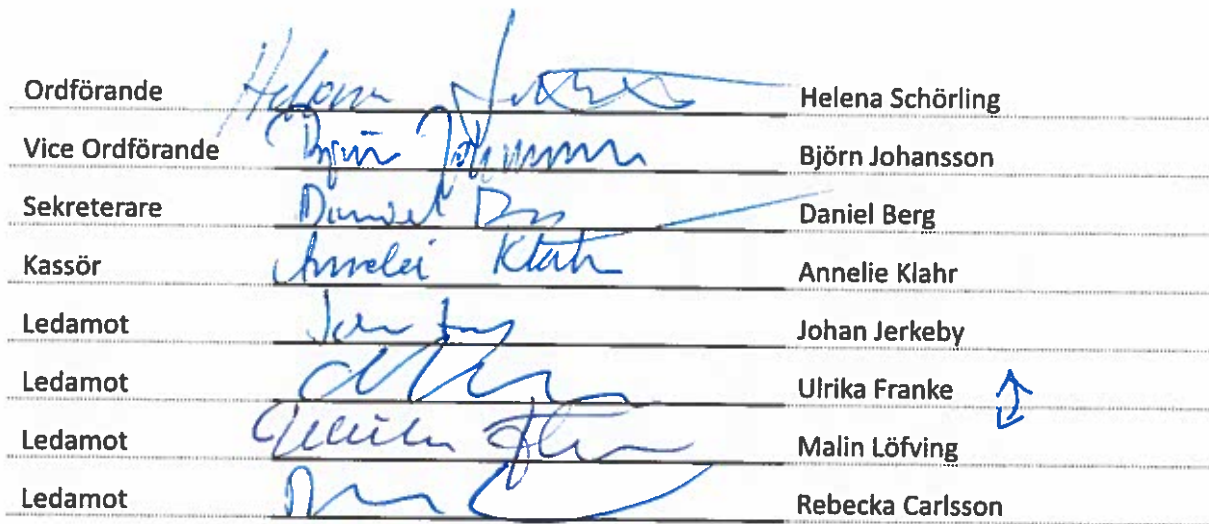 Ordförande Helena Helena Schörling
Vice Ordförande Björn Johansson Björn Johansson
Sekreterare Daniel Daniel Berg
Kassör Annelie Klahr Annelie Klahr
Ledamot Johan Jerkeby
Ledamot Ulrika Franke
Ledamot Malin Löfving
Ledamot Rebecka Carlsson